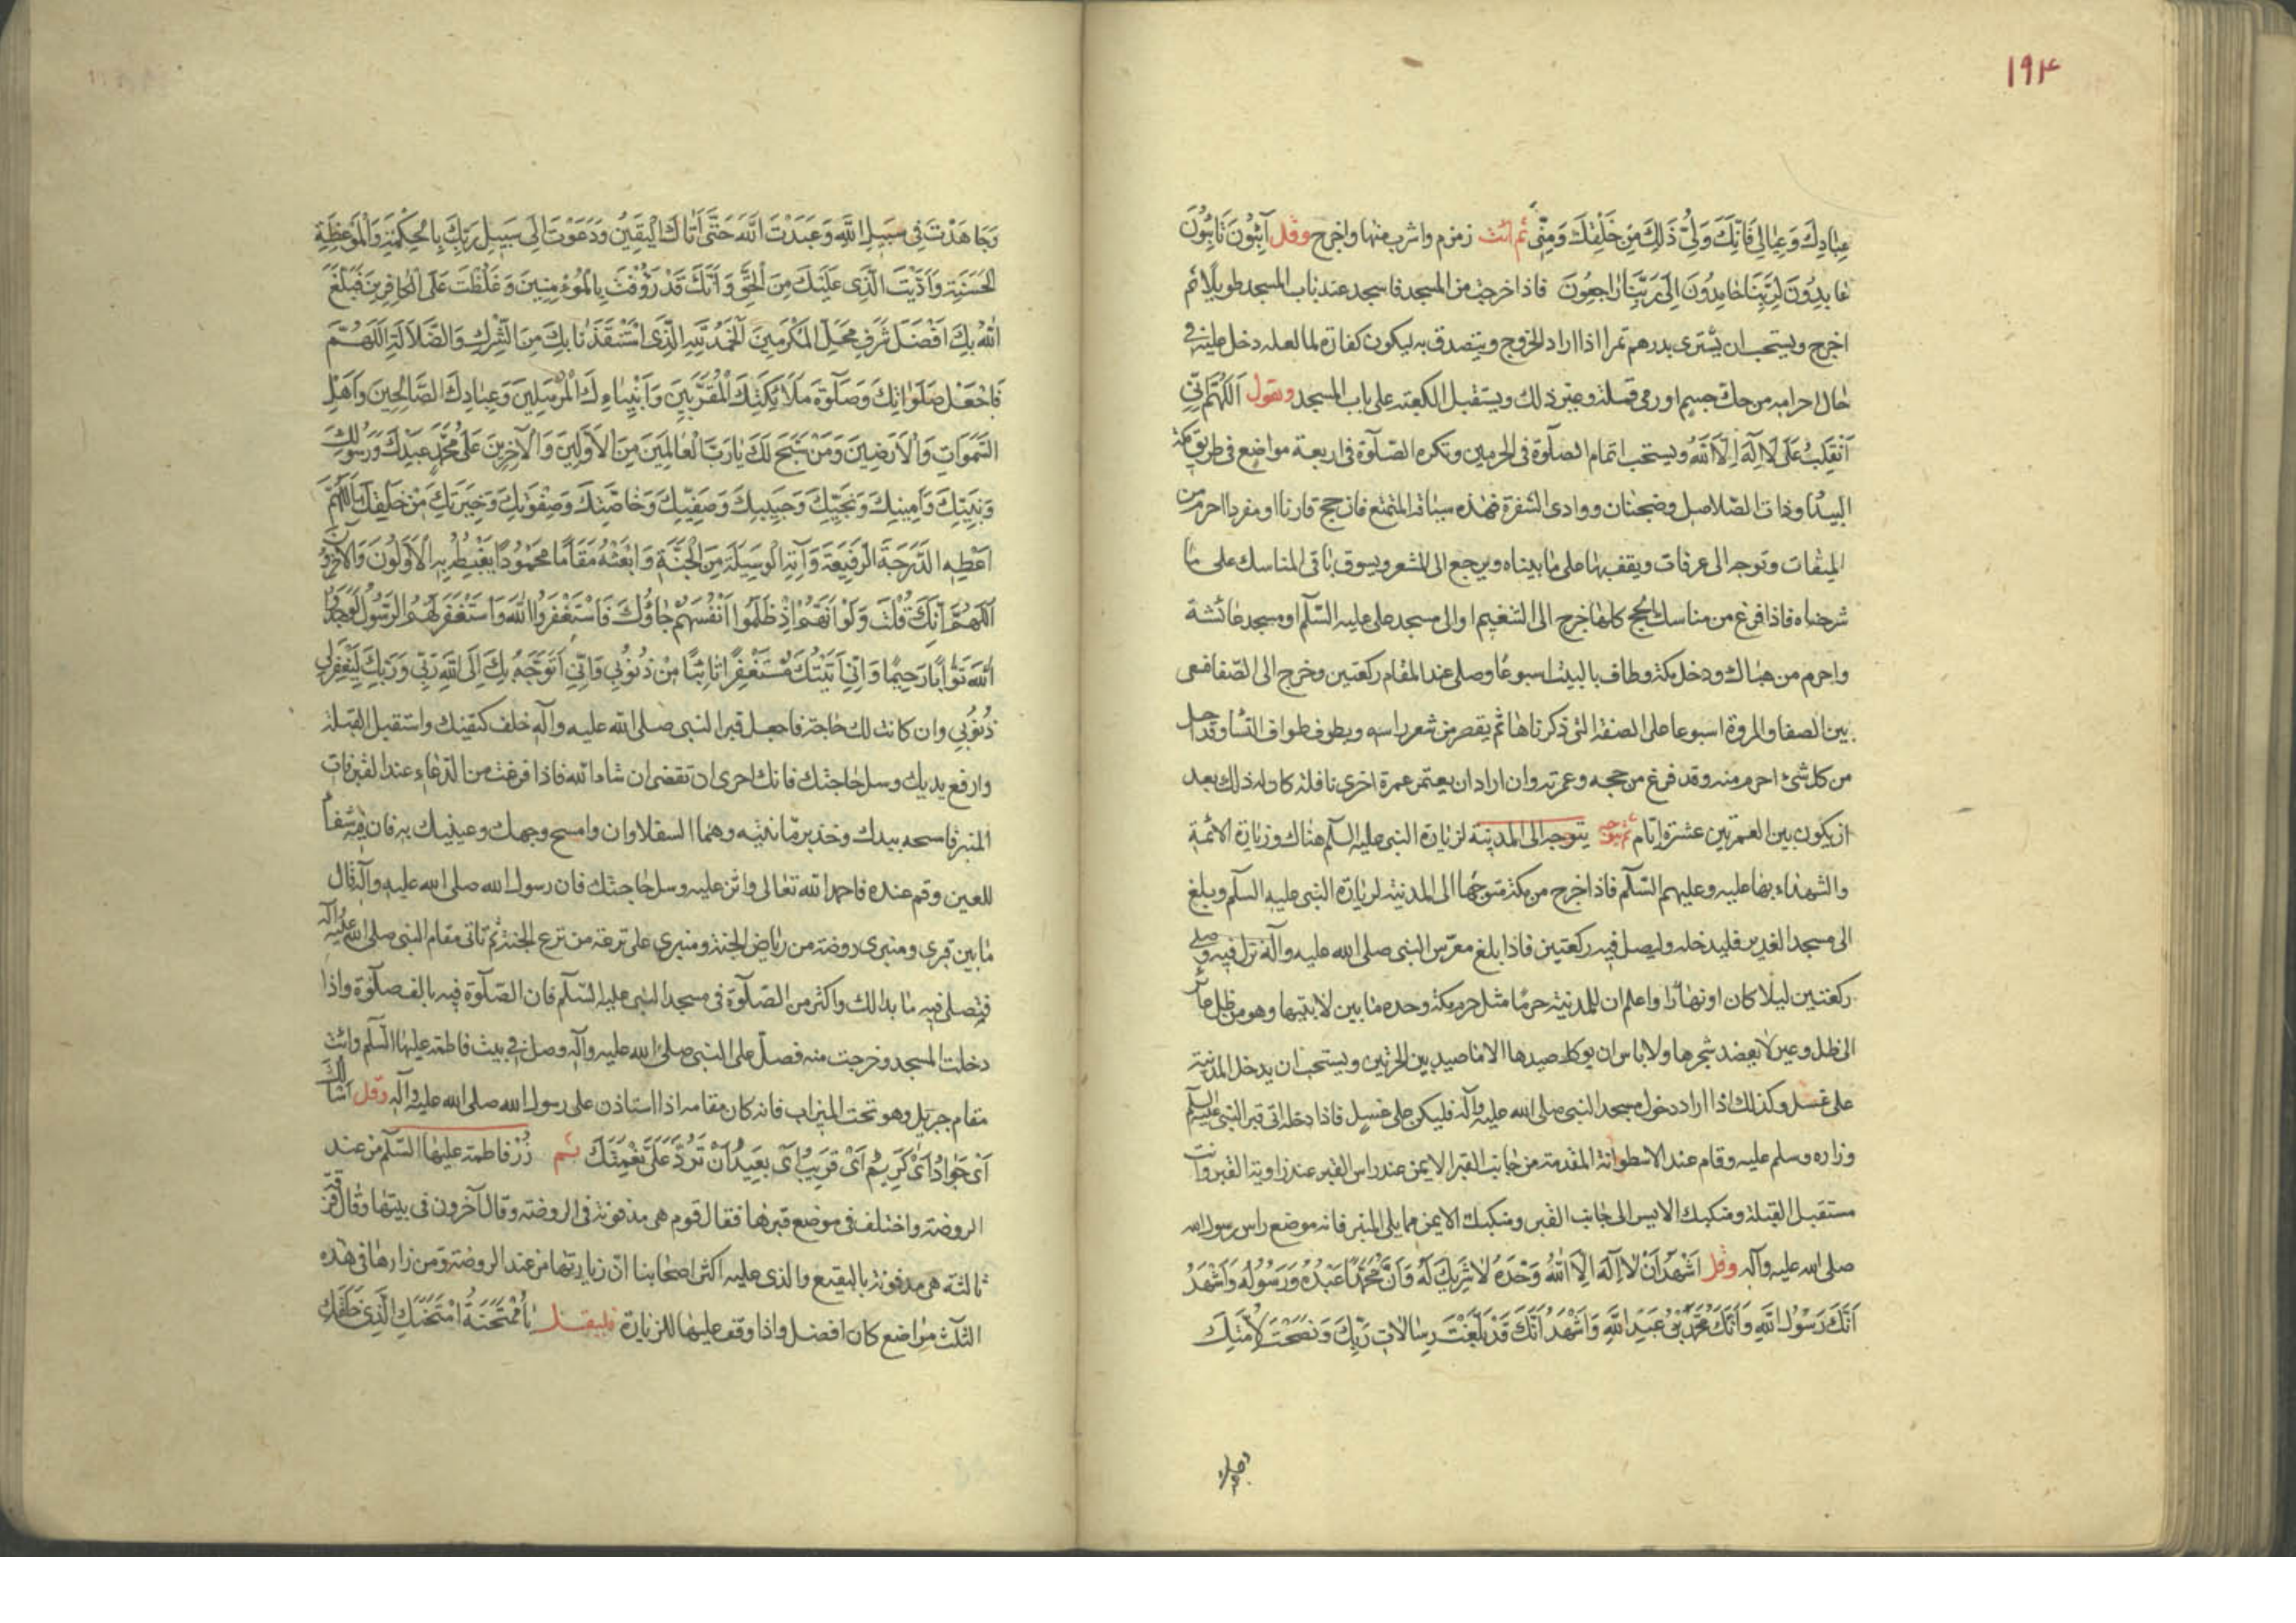 ١٩٤
عِبَادِكَ وَعِيَالِي فَاِنَّكَ وَلِيُّ ذَلِكَ مِنْ خَلْقِكَ وَمِنِّي ثم ائت زمزم واشرب منها واخرج وقل آئِبُونَ تَائِبُونَ
عَابِدُونَ لِرَبِّنَا حَامِدُونَ اِلَى رَبِّنَا رَاجِعُونَ فاذا خرجت من المسجد فاسجد عند باب المسجد طويلا ثم
اخرج ويستحب ان يشترى بدرهم تمرا اذا اراد الخروج ويتصدق به ليكون كفارة لما لعله دخل عليه في
حال احرامه من حك جسم او رمى قملة وغير ذلك ويستقبل الكعبة على باب المسجد ويقول اَللَّهُمَّ اِنِّي
اَنْقَلِبُ عَلَى لَا اِلَهَ اِلَّا اللَّهُ ويستحب اتمام الصلوة في الحرمين وتكره الصلوة في اربعة مواضع في طريق مكة
البيداء وذات الصلاصل وضجنان ووادى الشقرة فهذه سياقة المتمتع فان حج قارنا او مفردا احرم من
الميقات وتوجه الى عرفات ويقف بها على ما بيناه ويرجع الى المشعر ويسوق باقى المناسك على ما
شرحناه فاذا فرغ من مناسك الحج كلها خرج الى التنعيم او الى مسجد على عليه السّلم او مسجد عائشة
واحرم من هناك ودخل مكة وطاف بالبيت اسبوعًا وصلى عند المقام ركعتين وخرج الى الصّفا فسعى
بين الصفا والمروة اسبوعا على الصفة التى ذكرناها ثم يقصر من شعر راسه ويطوف طواف النساء وقد احل
من كل شئ احرم منه وقد فرغ من حجه وعمرته وان اراد ان يعتمر عمرة اخرى نافلة كان له ذلك بعد
ان يكون بين العمرتين عشرة ايّام ثم يتوجه يتوجه الى المدينة لزيارة النبى عليه السلم هناك وزيارة الائمة
والشهداء بها عليه وعليهم السّلم فاذا خرج من مكة متوجهًا الى المدينة لزيارة النبى عليه السلم وبلغ
الى مسجد الغدير فليدخله وليصل فيه ركعتين فاذا بلغ معرّس النبى صلى الله عليه وآله نزل فيه وصلى
ركعتين ليلا كان او نهارًا واعلم ان للمدينة حرمًا مثل حرم مكة وحده ما بين لابتيها وهو من ظل عائر
الى ظل وعير لا يعضد شجرها ولا باس ان يوكل صيدها الا ما صيد بين الحرتين ويستحب ان يدخل المدينة
على غسل وكذلك اذا اراد دخول مسجد النبى صلى الله عليه وآله فليكن على غسل فاذا دخله اتى قبر النبى عليه السلم
وزاره وسلم عليه وقام عند الاسطوانة المقدمة من جانب القبر الايمن عند راس القبر عند زاوية القبر وانت
مستقبل القبلة ومنكبك الايسر الى جانب القبر ومنكبك الايمن مما يلى المنبر فانه موضع راس رسول الله
صلى الله عليه وآله وقل اَشْهَدُ اَنْ لَا اِلَهَ اِلَّا اللَّهُ وَحْدَهُ لَا شَرِيكَ لَهُ وَاَنَّ مُحَمَّدًا عَبْدُهُ وَرَسُولُهُ وَاَشْهَدُ
اَنَّكَ رَسُولُ اللَّهِ وَاَنَّكَ مُحَمَّدُ بْنُ عَبْدِ اللَّهِ وَاَشْهَدُ اَنَّكَ قَدْ بَلَّغْتَ رِسَالَاتِ رَبِّكَ وَنَصَحْتَ لِاُمَّتِكَ
وجاهدت
وَجَاهَدْتَ فِي سَبِيلِ اللَّهِ وَعَبَدْتَ اللَّهَ حَتَّى اَتَاكَ الْيَقِينُ وَدَعَوْتَ اِلَى سَبِيلِ رَبِّكَ بِالْحِكْمَةِ وَالْمَوْعِظَةِ
الْحَسَنَةِ وَاَدَّيْتَ الَّذِي عَلَيْكَ مِنَ الْحَقِّ وَاَنَّكَ قَدْ رَؤُفْتَ بِالْمُؤْمِنِينَ وَغَلُظْتَ عَلَى الْكَافِرِينَ فَبَلَّغَ
اللَّهُ بِكَ اَفْضَلَ شَرَفِ مَحَلِّ الْمُكَرَّمِينَ اَلْحَمْدُ لِلَّهِ الَّذِي اسْتَنْقَذَنَا بِكَ مِنَ الشِّرْكِ وَالضَّلَالَةِ اَللَّهُمَّ
فَاجْعَلْ صَلَوَاتِكَ وَصَلَوةَ مَلَائِكَتِكَ الْمُقَرَّبِينَ وَاَنْبِيَاءِكَ الْمُرْسَلِينَ وَعِبَادِكَ الصَّالِحِينَ وَاَهْلِ
السَّمَوَاتِ وَالْاَرَضِينَ وَمَنْ سَبَّحَ لَكَ يَا رَبَّ الْعَالَمِينَ مِنَ الْاَوَّلِينَ وَالْآخِرِينَ عَلَى مُحَمَّدٍ عَبْدِكَ وَرَسُولِكَ
وَنَبِيِّكَ وَاَمِينِكَ وَنَجِيِّكَ وَحَبِيبِكَ وَصَفِيِّكَ وَخَاصَّتِكَ وَصِفْوَتِكَ وَخِيَرَتِكَ مِنْ خَلْقِكَ اَللَّهُمَّ
اَعْطِهِ الدَّرَجَةَ الرَّفِيعَةَ وَآتِهِ الْوَسِيلَةَ مِنَ الْجَنَّةِ وَابْعَثْهُ مَقَامًا مَحْمُودًا يَغْبِطُهُ بِهِ الْاَوَّلُونَ وَالْآخِرُونَ
اَللَّهُمَّ اِنَّكَ قُلْتَ وَلَوْ اَنَّهُمْ اِذْ ظَلَمُوا اَنْفُسَهُمْ جَاؤُكَ فَاسْتَغْفَرُوا اللَّهَ وَاسْتَغْفَرَ لَهُمُ الرَّسُولُ لَوَجَدُوا
اللَّهَ تَوَّابًا رَحِيمًا وَاِنِّي اَتَيْتُكَ مُسْتَغْفِرًا تَائِبًا مِنْ ذُنُوبِي وَاِنِّي اَتَوَجَّهُ بِكَ اِلَى اللَّهِ رَبِّي وَرَبِّكَ لِيَغْفِرَ لِي
ذُنُوبِي وان كانت لك حاجة فاجعل قبر النبى صلى الله عليه وآله خلف كتفيك واستقبل القبلة
وارفع يديك وسل حاجتك فانك احرى ان تقضى ان شاء الله فاذا فرغت من الدعاء عند القبر فات
المنبر فامسحه بيدك وخذ برمّانتيه وهما السفلاوان وامسح وجهك وعينيك به فان فيه شفاء
للعين وقم عنده فاحمد الله تعالى واثن عليه وسل حاجتك فان رسول الله صلى الله عليه وآله قال
ما بين قبرى ومنبرى روضة من رياض الجنة ومنبرى على ترعة من ترع الجنة ثم تاتى مقام النبى صلى الله عليه وآله
فتصلى فيه ما بدا لك واكثر من الصّلوة في مسجد النبى عليه السّلم فان الصّلوة فيه بالف صلوة واذا
دخلت المسجد وخرجت منه فصلّ على النبى صلى الله عليه وآله وصل في بيت فاطمة عليها السّلم وائت
مقام جبريل وهو تحت الميزاب فانه كان مقامه اذا استاذن على رسول الله صلى الله عليه وآله وقل اسالك
اَىْ جَوَادُ اَىْ كَرِيمُ اَىْ قَرِيبُ اَىْ بَعِيدُ اَنْ تَرُدَّ عَلَىَّ نِعْمَتَكَ ثم زُرْ فاطمة عليها السّلم من عند
الروضة واختلف في موضع قبرها فقال قوم هى مدفونة في الروضة وقال آخرون في بيتها وقال فرقة
ثالثة هى مدفونة بالبقيع والذى عليه اكثر اصحابنا انّ زيارتها من عند الروضة ومن زارها في هذه
الثلث مواضع كان افضل واذا وقف عليها للزيارة فليقل يَا مُمْتَحَنَةُ امْتَحَنَكِ الَّذِي خَلَقَكِ